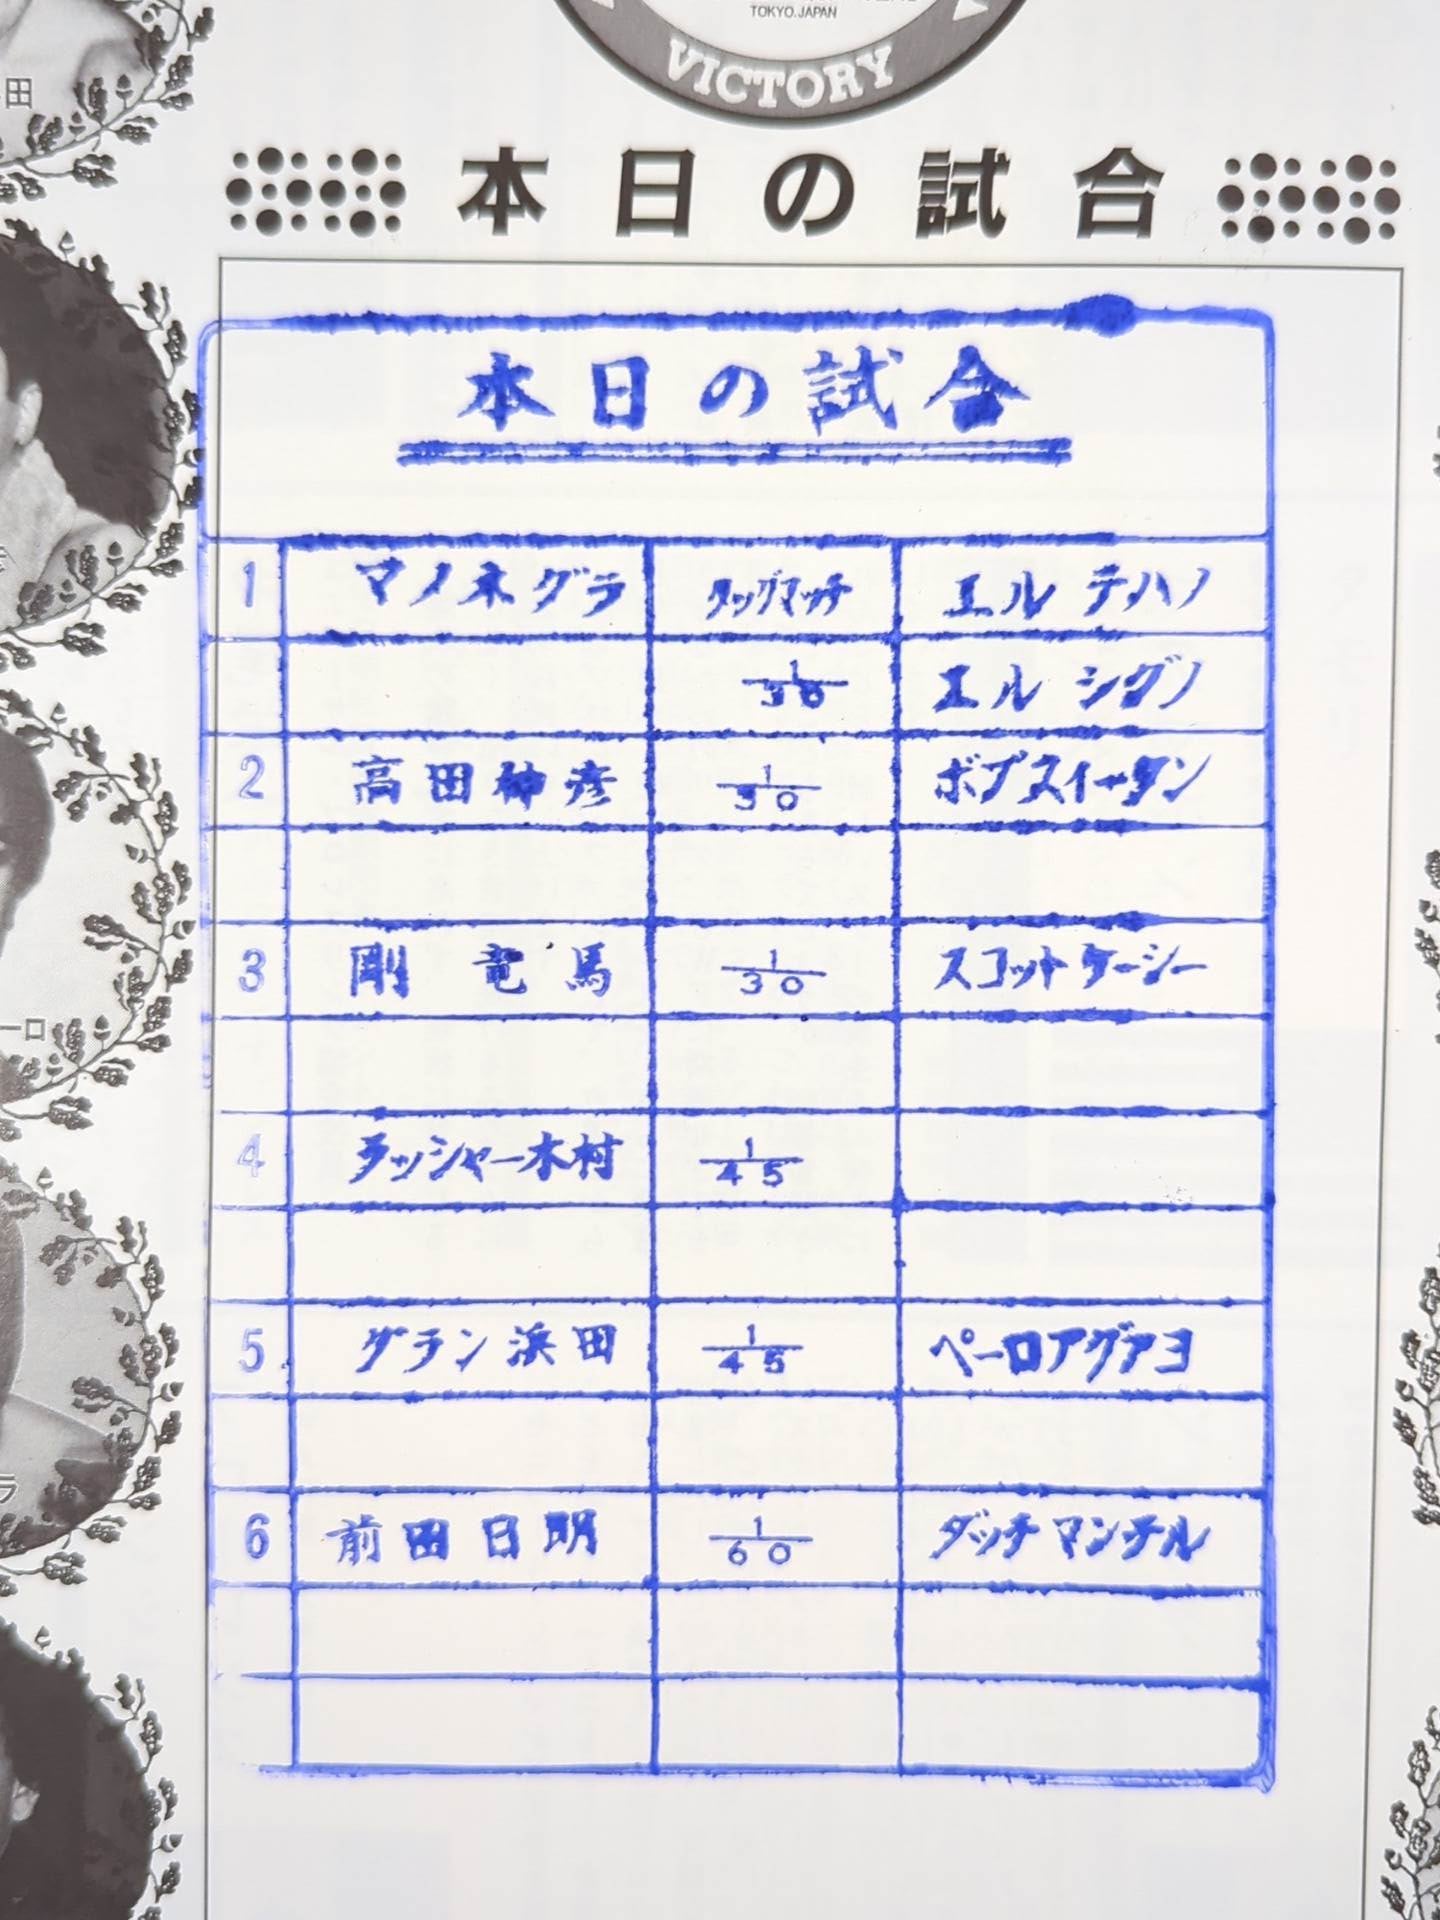 TOKYO.JAPAN
VICTORY
田
本日の試合
本日の試合
1 マノネグラ タッグマッチ エル テハノ
1/30 エル シグノ
2 高田伸彦 1/30 ボブスイータン
3 剛 竜馬 1/30 スコットケーシー
ーロ
4 ラッシャー木村 1/45
5 グラン浜田 1/45 ペーロアグアヨ
ラ
6 前田日明 1/60 ダッチマンテル